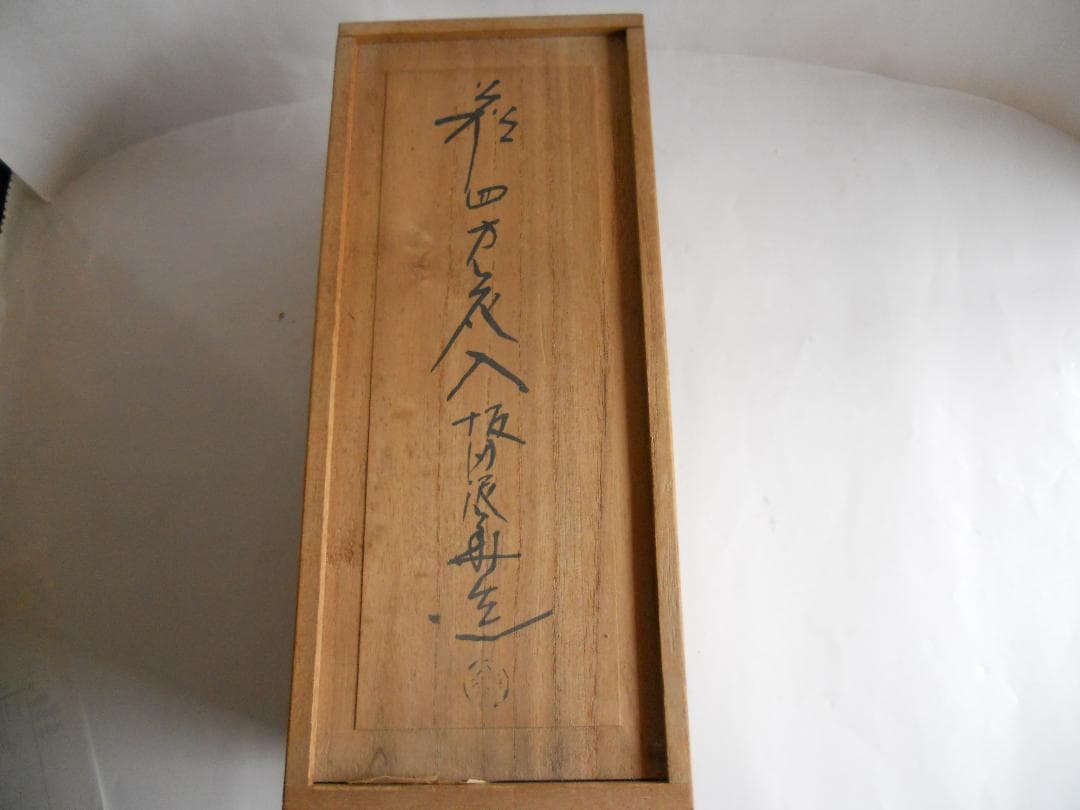 萩四方花入 坂田泥華造